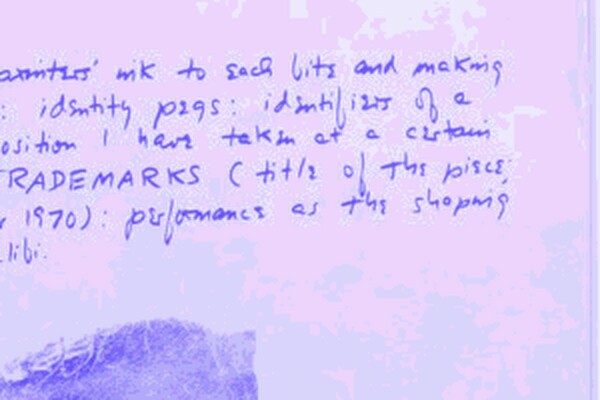 printers' ink to each bite and making
: identity pegs: identifiers of a
osition I have taken at a certain
TRADEMARKS (title of the piece,
r 1970): performance as the shaping
libi.